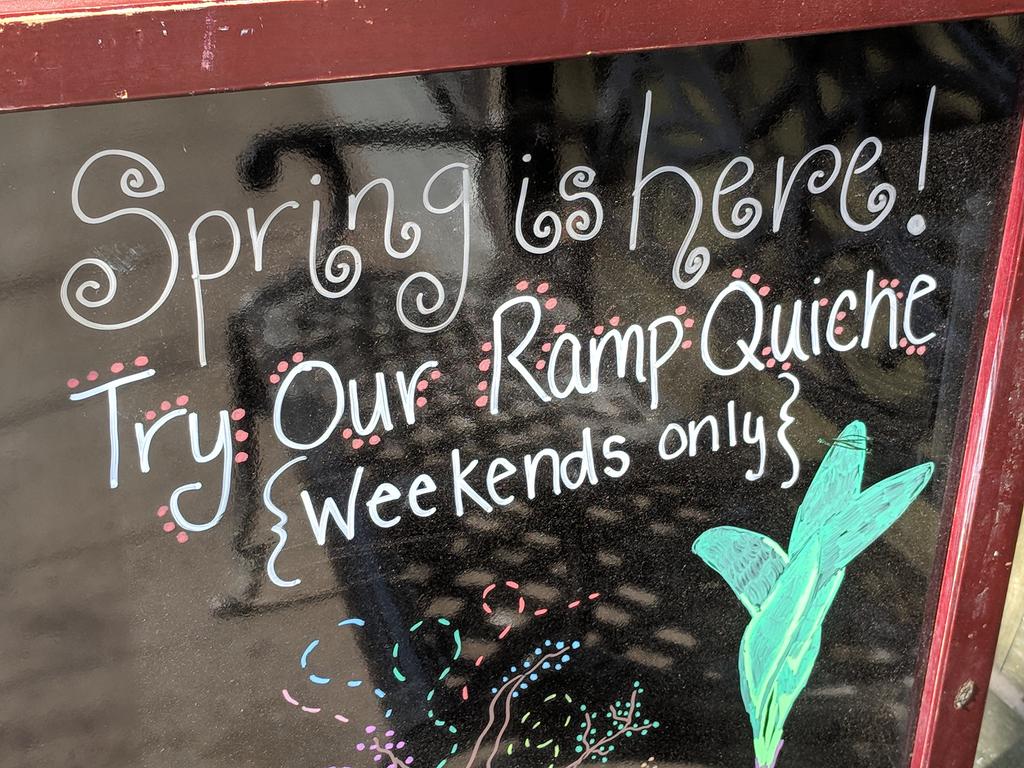 Spring is here!
Try Our Ramp Quiche
{Weekends only}